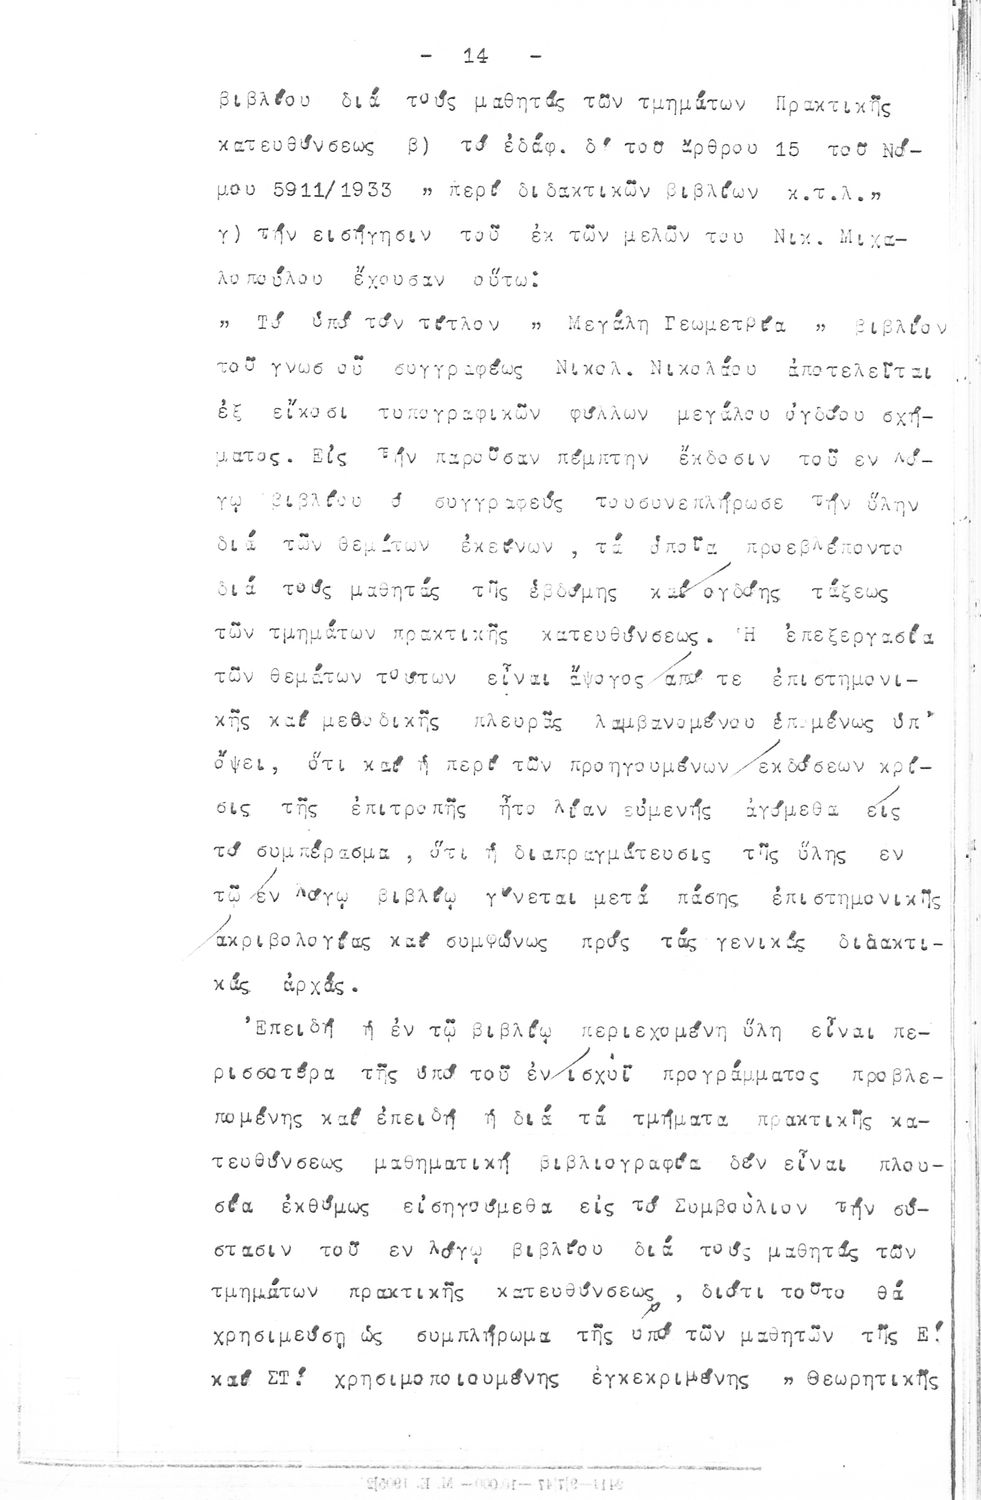 - 14 -
βιβλίου διά τούς μαθητάς τῶν τμημάτων Πρακτικῆς
κατευθύνσεως β) τό ἐδάφ. δ' τοῦ ἄρθρου 15 τοῦ Νό-
μου 5911/1933 " περί διδακτικῶν βιβλίων κ.τ.λ."
γ) τήν εισήγησιν τοῦ ἐκ τῶν μελῶν του Νικ. Μιχα-
λοπούλου ἔχουσαν οὕτω:
" Τό ὑπό τόν τίτλον " Μεγάλη Γεωμετρία " βιβλίον
τοῦ γνωσ οῦ συγγραφέως Νικολ. Νικολάου ἀποτελεῖται
ἐξ εἴκοσι τυπογραφικῶν φύλλων μεγάλου ὀγδόου σχή-
ματος. Εἰς τήν παροῦσαν πέμπτην ἔκδοσιν τοῦ εν λό-
γῳ βιβλίου ὁ συγγραφεύς τουσυνεπλήρωσε τήν ὕλην
διά τῶν θεμάτων ἐκείνων , τά ὁποῖα προεβλέποντο
διά τούς μαθητάς τῆς ἑβδόμης καί ογδόης τάξεως
τῶν τμημάτων πρακτικῆς κατευθύνσεως. Ἡ ἐπεξεργασία
τῶν θεμάτων τούτων εἶναι ἄψογος ἀπό τε ἐπιστημονι-
κῆς καί μεθοδικῆς πλευρᾶς λαμβανομένου ἑπομένως ὑπ'
ὄψει, ὅτι καί ἡ περί τῶν προηγουμένων ἐκδόσεων κρί-
σις τῆς ἐπιτροπῆς ἦτο λίαν εὐμενής ἀγόμεθα εἰς
τό συμπέρασμα , ὅτι ἡ διαπραγμάτευσις τῆς ὕλης εν
τῷ ἐν λόγῳ βιβλίῳ γίνεται μετά πάσης ἐπιστημονικῆς
ἀκριβολογίας καί συμφώνως πρός τάς γενικάς διδακτι-
κάς ἀρχάς.
Ἐπειδή ἡ ἐν τῷ βιβλίῳ περιεχομένη ὕλη εἶναι πε-
ρισσοτέρα τῆς ὑπό τοῦ ἐν ἰσχύϊ προγράμματος προβλε-
πομένης καί ἐπειδή ἡ διά τά τμήματα πρακτικῆς κα-
τευθύνσεως μαθηματική βιβλιογραφία δέν εἶναι πλου-
σία ἐκθύμως εἰσηγούμεθα εἰς τό Συμβούλιον τήν σύ-
στασιν τοῦ εν λόγῳ βιβλίου διά τούς μαθητάς τῶν
τμημάτων πρακτικῆς κατευθύνσεως , διότι τοῦτο θά
χρησιμεύσῃ ὡς συμπλήρωμα τῆς ὑπό τῶν μαθητῶν τῆς Ε!
καί ΣΤ! χρησιμοποιουμένης ἐγκεκριμένης " Θεωρητικῆς